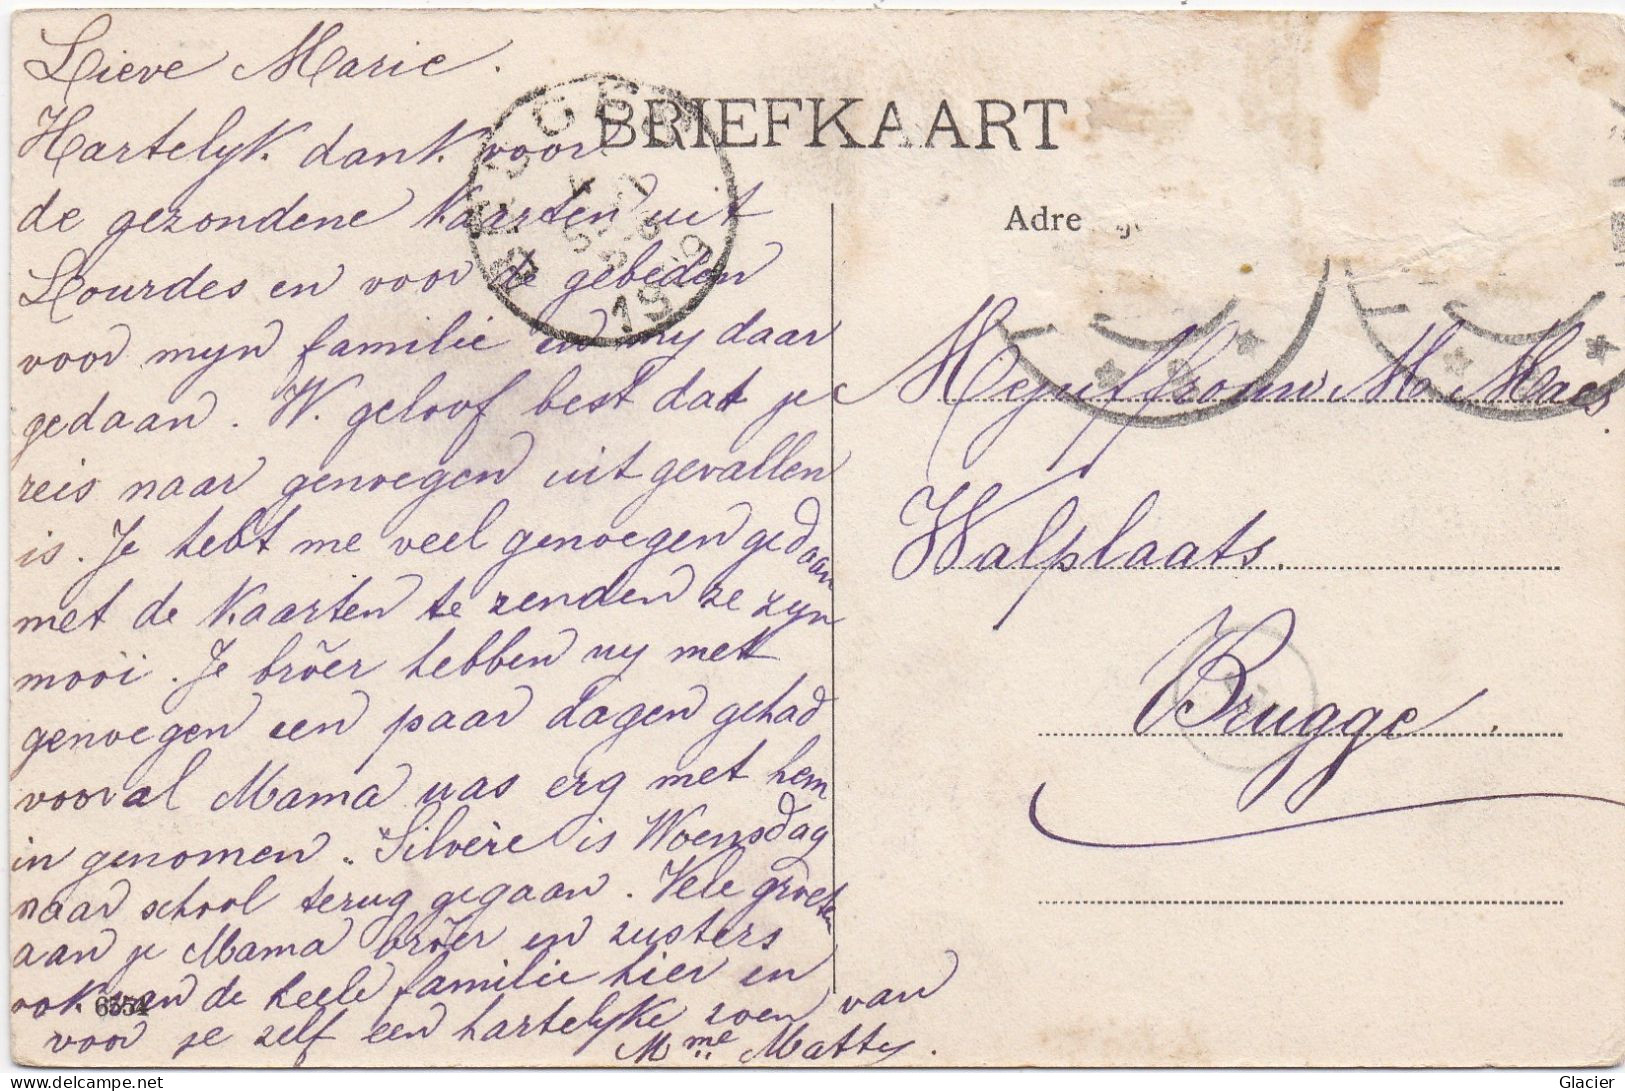 Lieve Marie.
Hartelyk dank voor
de gezondene kaarten uit
Lourdes en voor de gebeden
voor myn familie en my daar
gedaan. W. geloof best dat je
reis naar genoegen uit gevallen
is. Je hebt me veel genoegen gedaan
met de kaarten te zenden ze zyn
mooi. Je broer hebben wy met
genoegen een paar dagen gehad
vooral Mama was erg met hem
in genomen. Silvère is Woensdag
naar school terug gegaan. Vele groeten
aan je Mama broer en zusters
ook van de heele familie hier en
voor je zelf een hartelyke zoen van
Mme Matty.
6554
BRIEFKAART
Adre
Mejuffrouw M. Maes.
Walplaats.
Brugge.
19
delcampe.net
Glacier